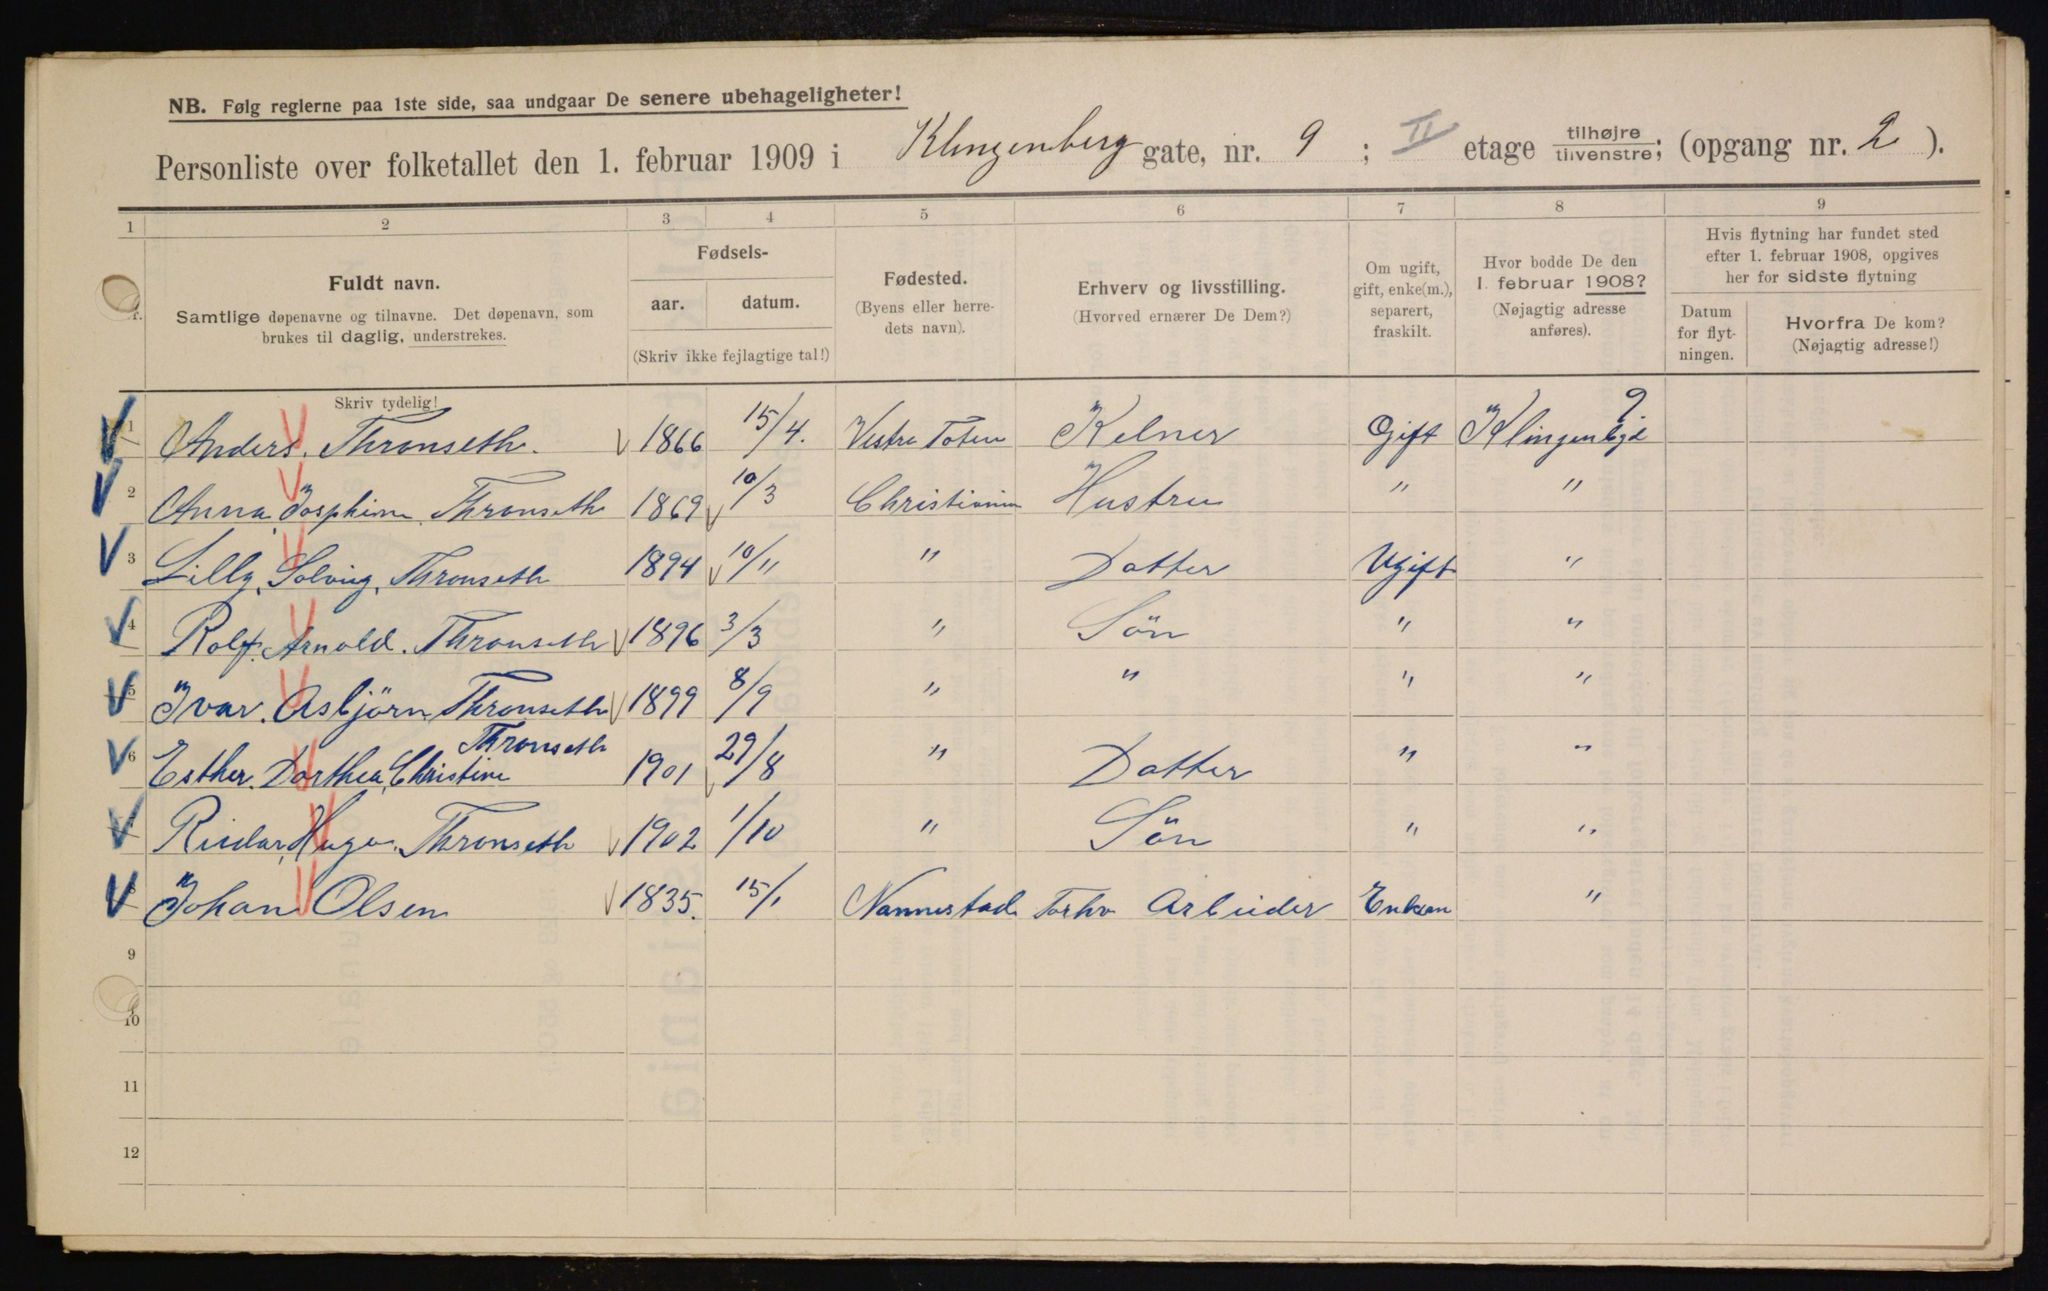 NB. Følg reglerne paa 1ste side, saa undgaar De senere ubehageligheter!
Personliste over folketallet den 1. februar 1909 i Klingenberg gate, nr. 9 ; II etage tilhøjre/tilvenstre; (opgang nr. 2 ).
1 2 3 4 5 6 7 8 9
Fuldt navn.
Samtlige døpenavne og tilnavne. Det døpenavn, som
brukes til daglig, understrekes.
Fødsels-
aar. datum.
(Skriv ikke fejlagtige tal!)
Fødested.
(Byens eller herre-
dets navn).
Erhverv og livsstilling.
(Hvorved ernærer De Dem?)
Om ugift,
gift, enke(m.),
separert,
fraskilt.
Hvor bodde De den
1. februar 1908?
(Nøjagtig adresse
anføres).
Hvis flytning har fundet sted
efter 1. februar 1908, opgives
her for sidste flytning
Datum
for flyt-
ningen.
Hvorfra De kom?
(Nøjagtig adresse!)
Skriv tydelig!
1 Anders. Thronseth. 1866 15/4. Vestre Toten Kelner Gift Klingenbgd 9
2 Anna Josphine Thronseth 1869 10/3 Christiania Hustru " "
3 Lilly Solvig Thronseth 1894 10/11 " Datter Ugift "
4 Rolf. Arnold. Thronseth 1896 3/3 " Sön " "
5 Ivar. Asbjörn Thronseth 1899 8/9 " " " "
6 Esther. Dorthea Christine Thronseth 1901 29/8 " Datter " "
Reidar Hugo. Thronseth 1902 1/10 " Sön " "
8 Johan Olsen 1835. 15/1 Nannestad Forhv Arbeider Enkem "
9
10
11
12